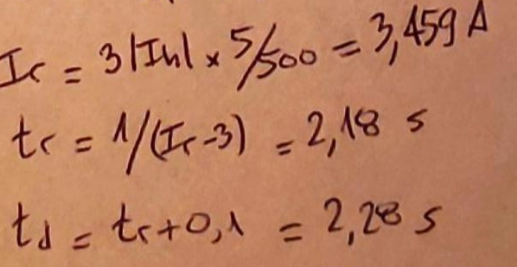 Ir = 3|Ih| x 5/500 = 3,459 A
tr = 1/(Ir-3) = 2,18 s
td = tr+0,1 = 2,28 s